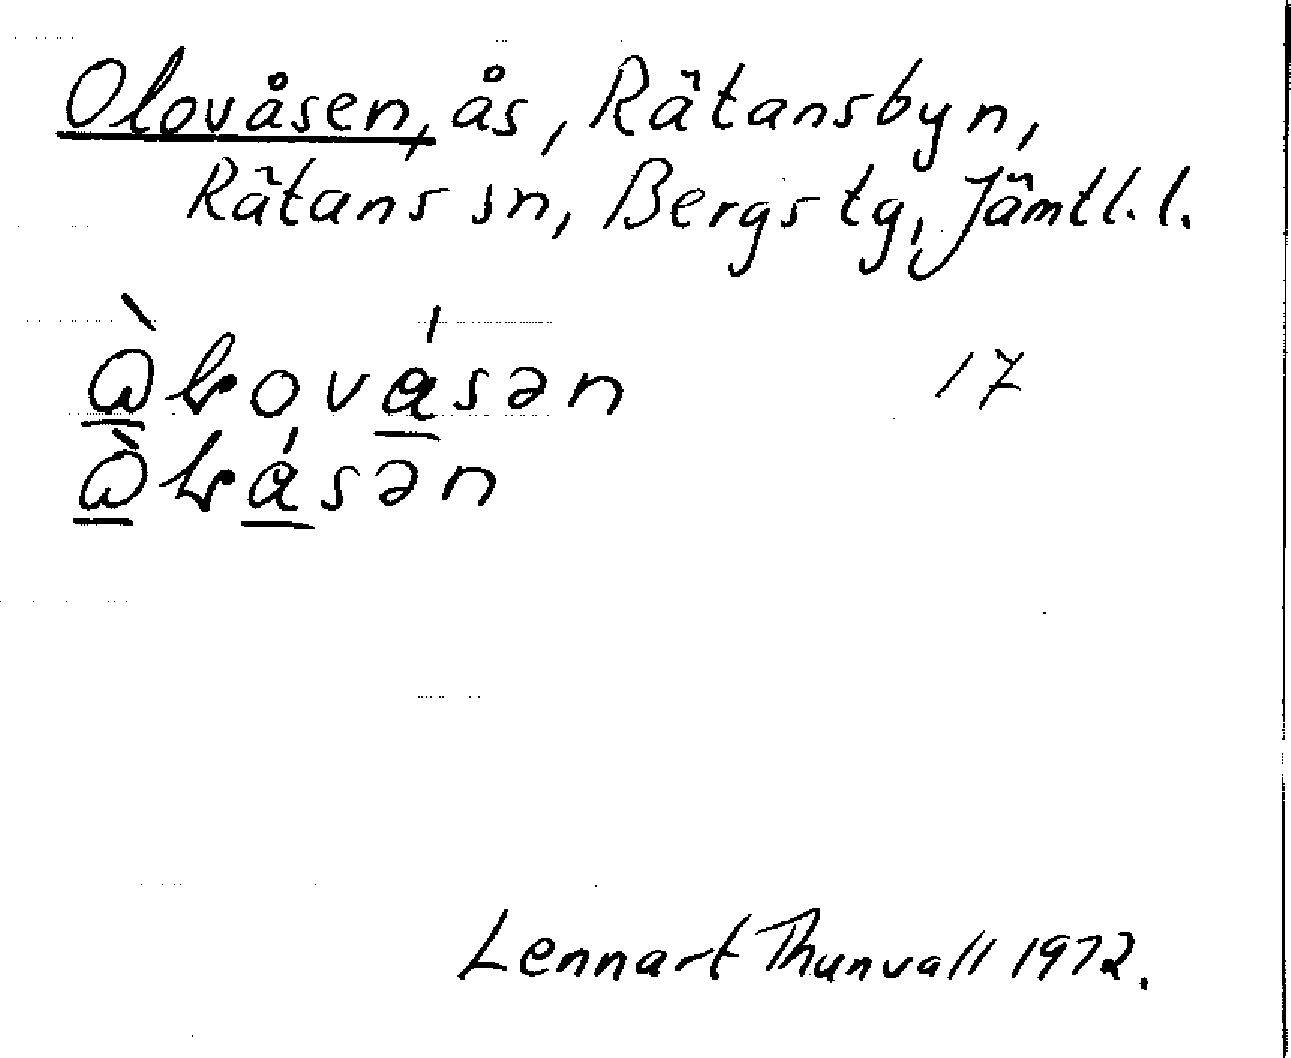 Olovåsen, ås, Rätansbyn,
Rätans sn, Bergs tg, Jämtl. l.
17
Lennart Thunvall 1972.